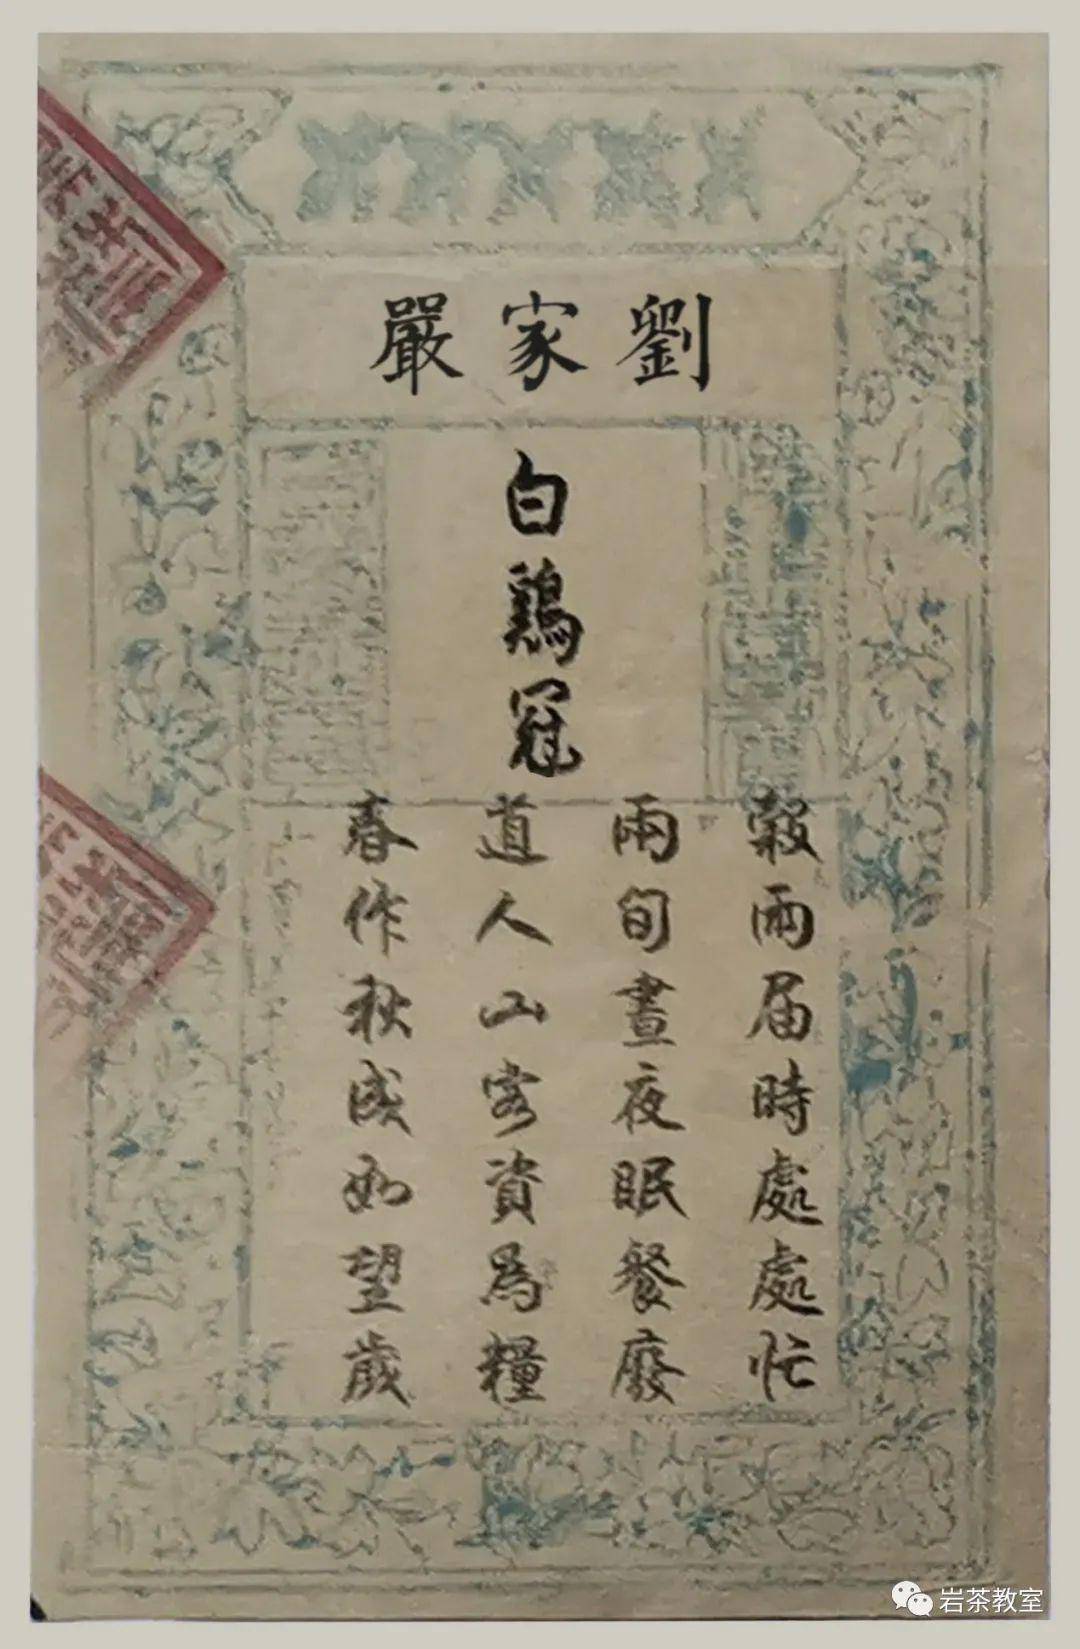 劉家嚴
白鷄冠
穀雨届時處處忙
兩旬晝夜眠餐廢
道人山客資爲糧
春作秋成如望歲
岩茶教室